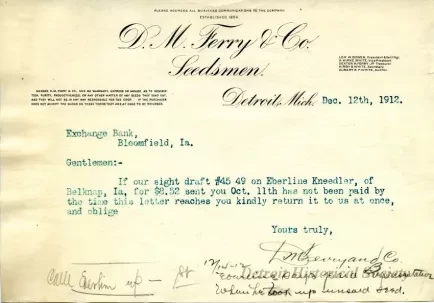 PLEASE ADDRESS ALL BUSINESS COMMUNICATIONS TO THE COMPANY
ESTABLISHED 1856.
D. M. Ferry & Co.
Seedsmen.
Detroit, Mich. Dec. 12th, 1912.
Exchange Bank,
Bloomfield, Ia.
Gentlemen:-
If our sight draft #45 49 on Eberline Kneedler, of
Belknap, Ia, for $6.52 sent you Oct, 11th has not been paid by
the time this letter reaches you kindly return it to us at once,
and oblige
Yours truly,
D M Ferry and Co.
Detroit Historical Society
When he took up unsaid seed.